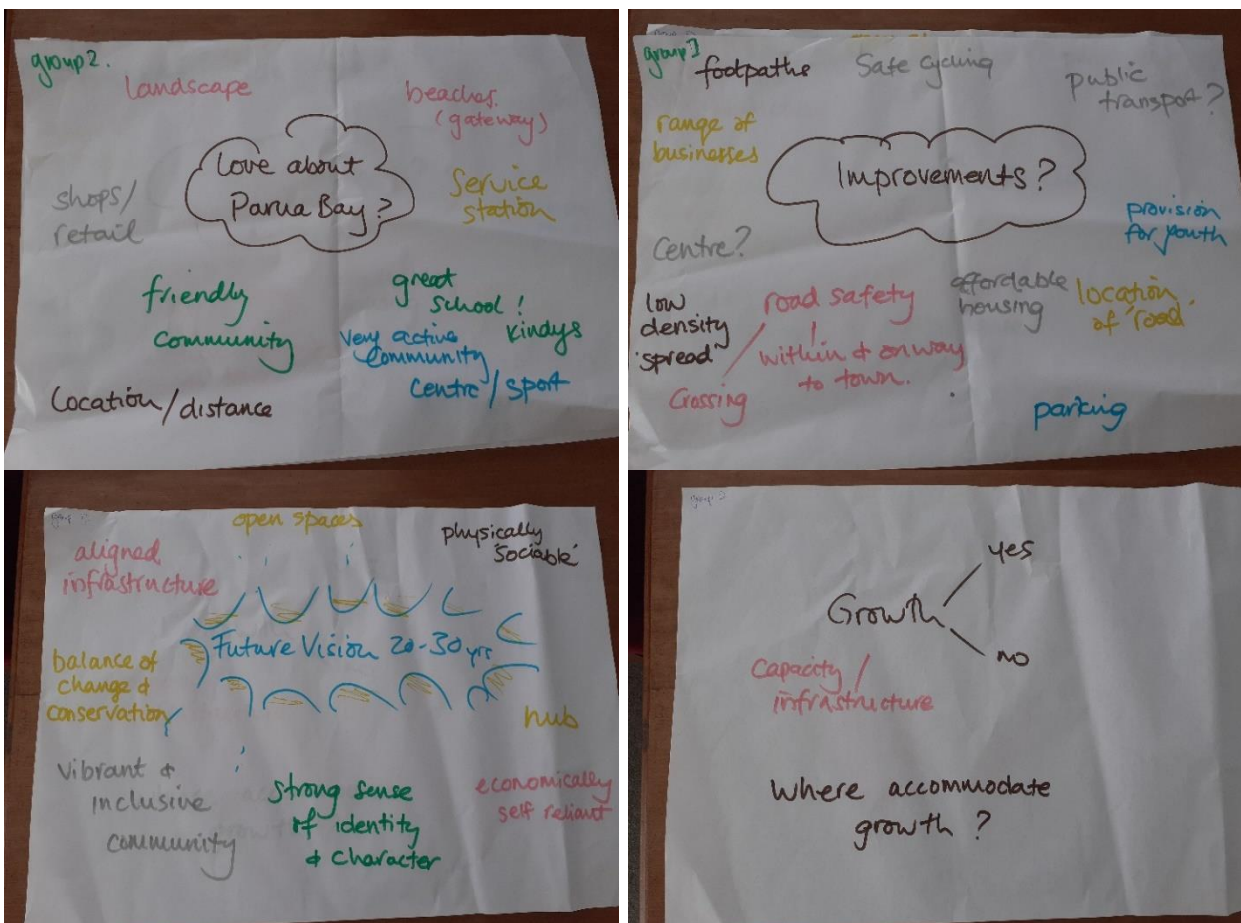 group 2.
landscape
beaches.
(gateway)
Love about
Parua Bay?
shops/
retail
Service
station
friendly
community
great
school!
kindys
very active
community
centre / sport
Location/distance
group
footpaths
Safe cycling
public
transport?
range of
businesses
Improvements?
provision
for youth
Centre?
low
density
'spread'
road safety
affordable
housing
location
of 'road'
within & on way
to town.
Crossing
parking
open spaces
physically
'sociable'
aligned
infrastructure
Future Vision 20-30 yrs
balance of
change &
conservation
hub
vibrant &
inclusive
community
strong sense
of identity
& character
economically
self reliant
Growth
yes
no
Capacity /
infrastructure
Where accommodate
growth?